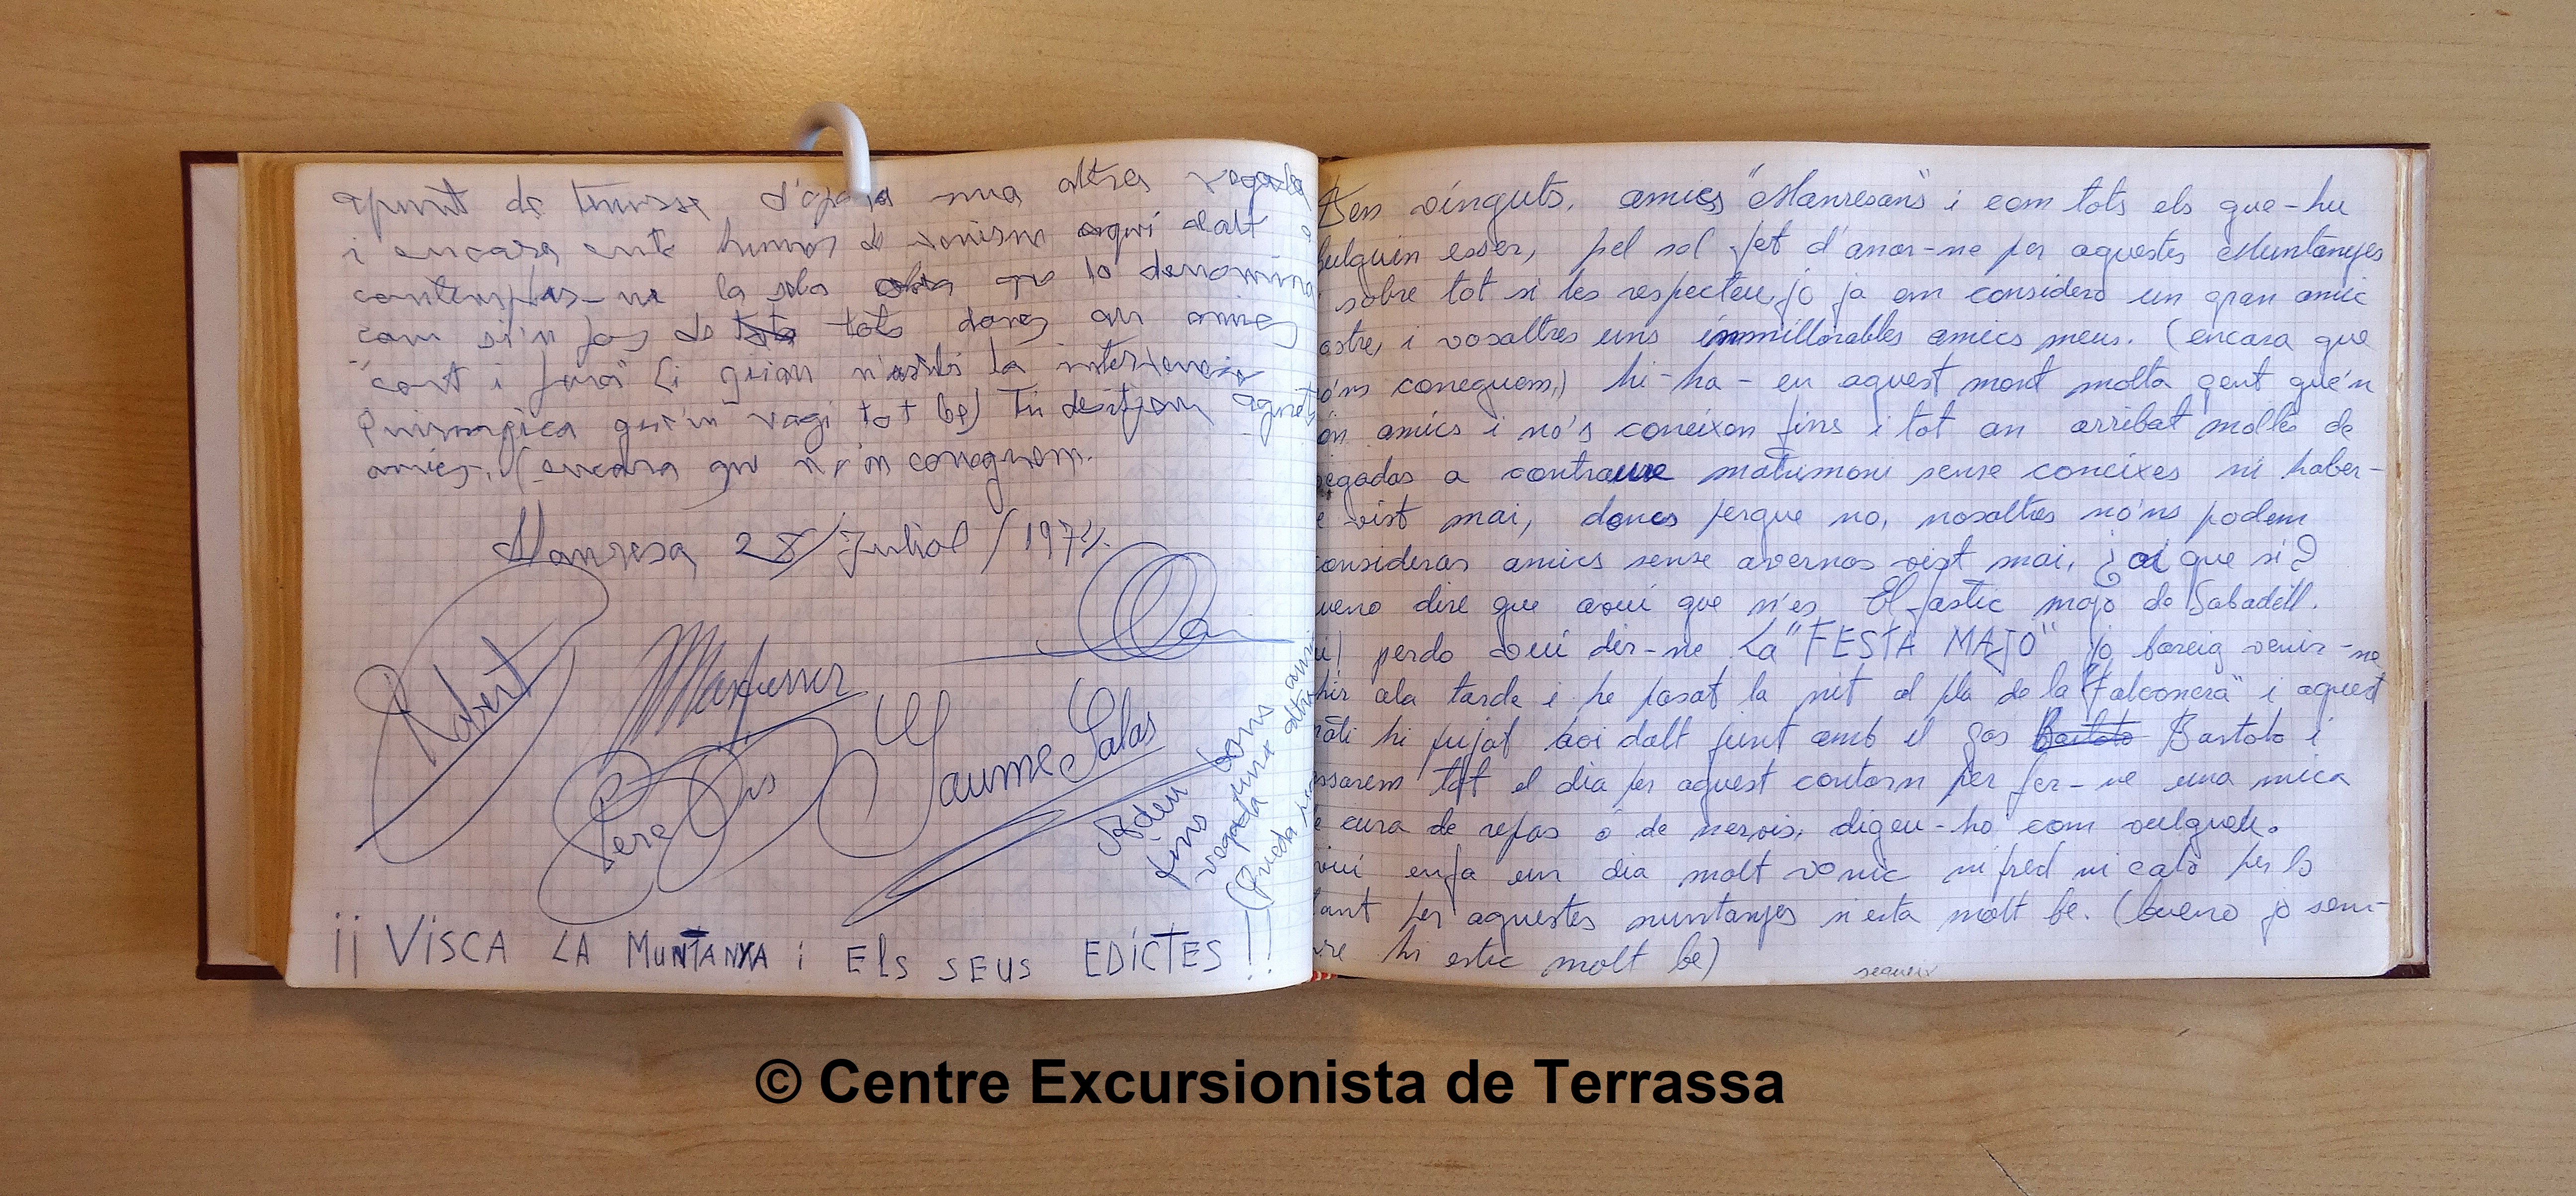 apunt de
una altra vegada
i encara humor de aquí dalt
contemplas-ne la sola que lo denomina
com si'n fos de tots doncs an amics
"cort i fora" (i quian n'astis la intervencio
Quirurgica que'm vagi tot be) Tu desitjem aquets
amics, (encara que no'n coneguem.
Manresa 28/Juliol/1974.
Robert
Pere
Jaume Salas
Adeu
fins
vegada
¡¡ VISCA LA MUNTANYA i ELS SEUS EDICTES !!
Ben vinguts, amics "Manresans" i com tots els que-hu
bulguin esser, pel sol fet d'anar-ne per aquestes Muntanyes
i sobre tot si les respecteu, jo ja em considero un gran amic
ostre, i vosaltres uns immillorables amics meus. (encara que
no'ns coneguem,) hi-ha-en aquest mont molta gent que'n
són amics i no's coneixen fins i tot an arribat moltes de
vegadas a contraure matrimoni sense coneixes ni haber-
se vist mai, doncs perque no, nosaltres no'ns podem
consideras amics sense avernos vist mai, ¿oi que si?
bueno dire que avui que n'es El fastic majo de Sabadell.
ui! perdo vui dir-ne La "FESTA MAJO" jo bareig venir-ne
ahir ala tarde i he pasat la nit al pla de la "Falconera" i aquest
mati hi pujat aci dalt junt amb el gos Bartolo Bartolo i
passarem tot el dia per aquest contorn per fer-ne una mica
de cura de repas ó de nervis, digeu-ho com vulgueu.
avui enfa un dia molt vonic ni fred ni calo per lo
tant per aquestes muntanyes n'esta molt be. (bueno jo sem-
pre hi estic molt be)
segueix
© Centre Excursionista de Terrassa